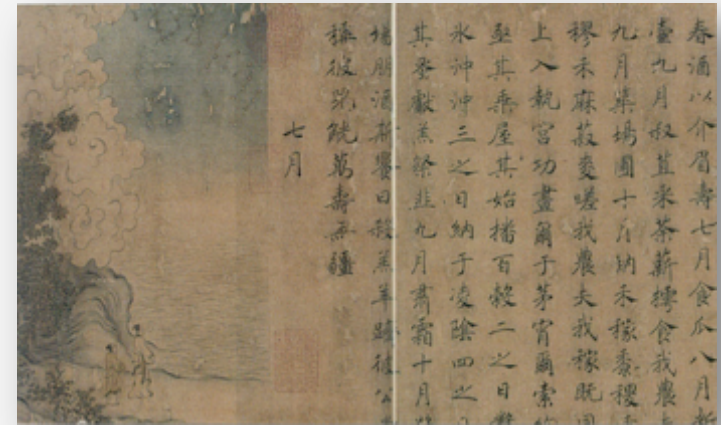 春酒以介眉壽七月食瓜八月斷
壺九月叔苴采荼薪樗食我農
九月築場圃十月納禾稼黍稷
穋禾麻菽麥嗟我農夫我稼既同
上入執宮功晝爾于茅宵爾索
亟其乘屋其始播百穀二之日鑿
冰沖沖三之日納于凌陰四之
其蚤獻羔祭韭九月肅霜十月
場朋酒斯饗日殺羔羊躋彼公
稱彼兕觥萬壽無疆
七月